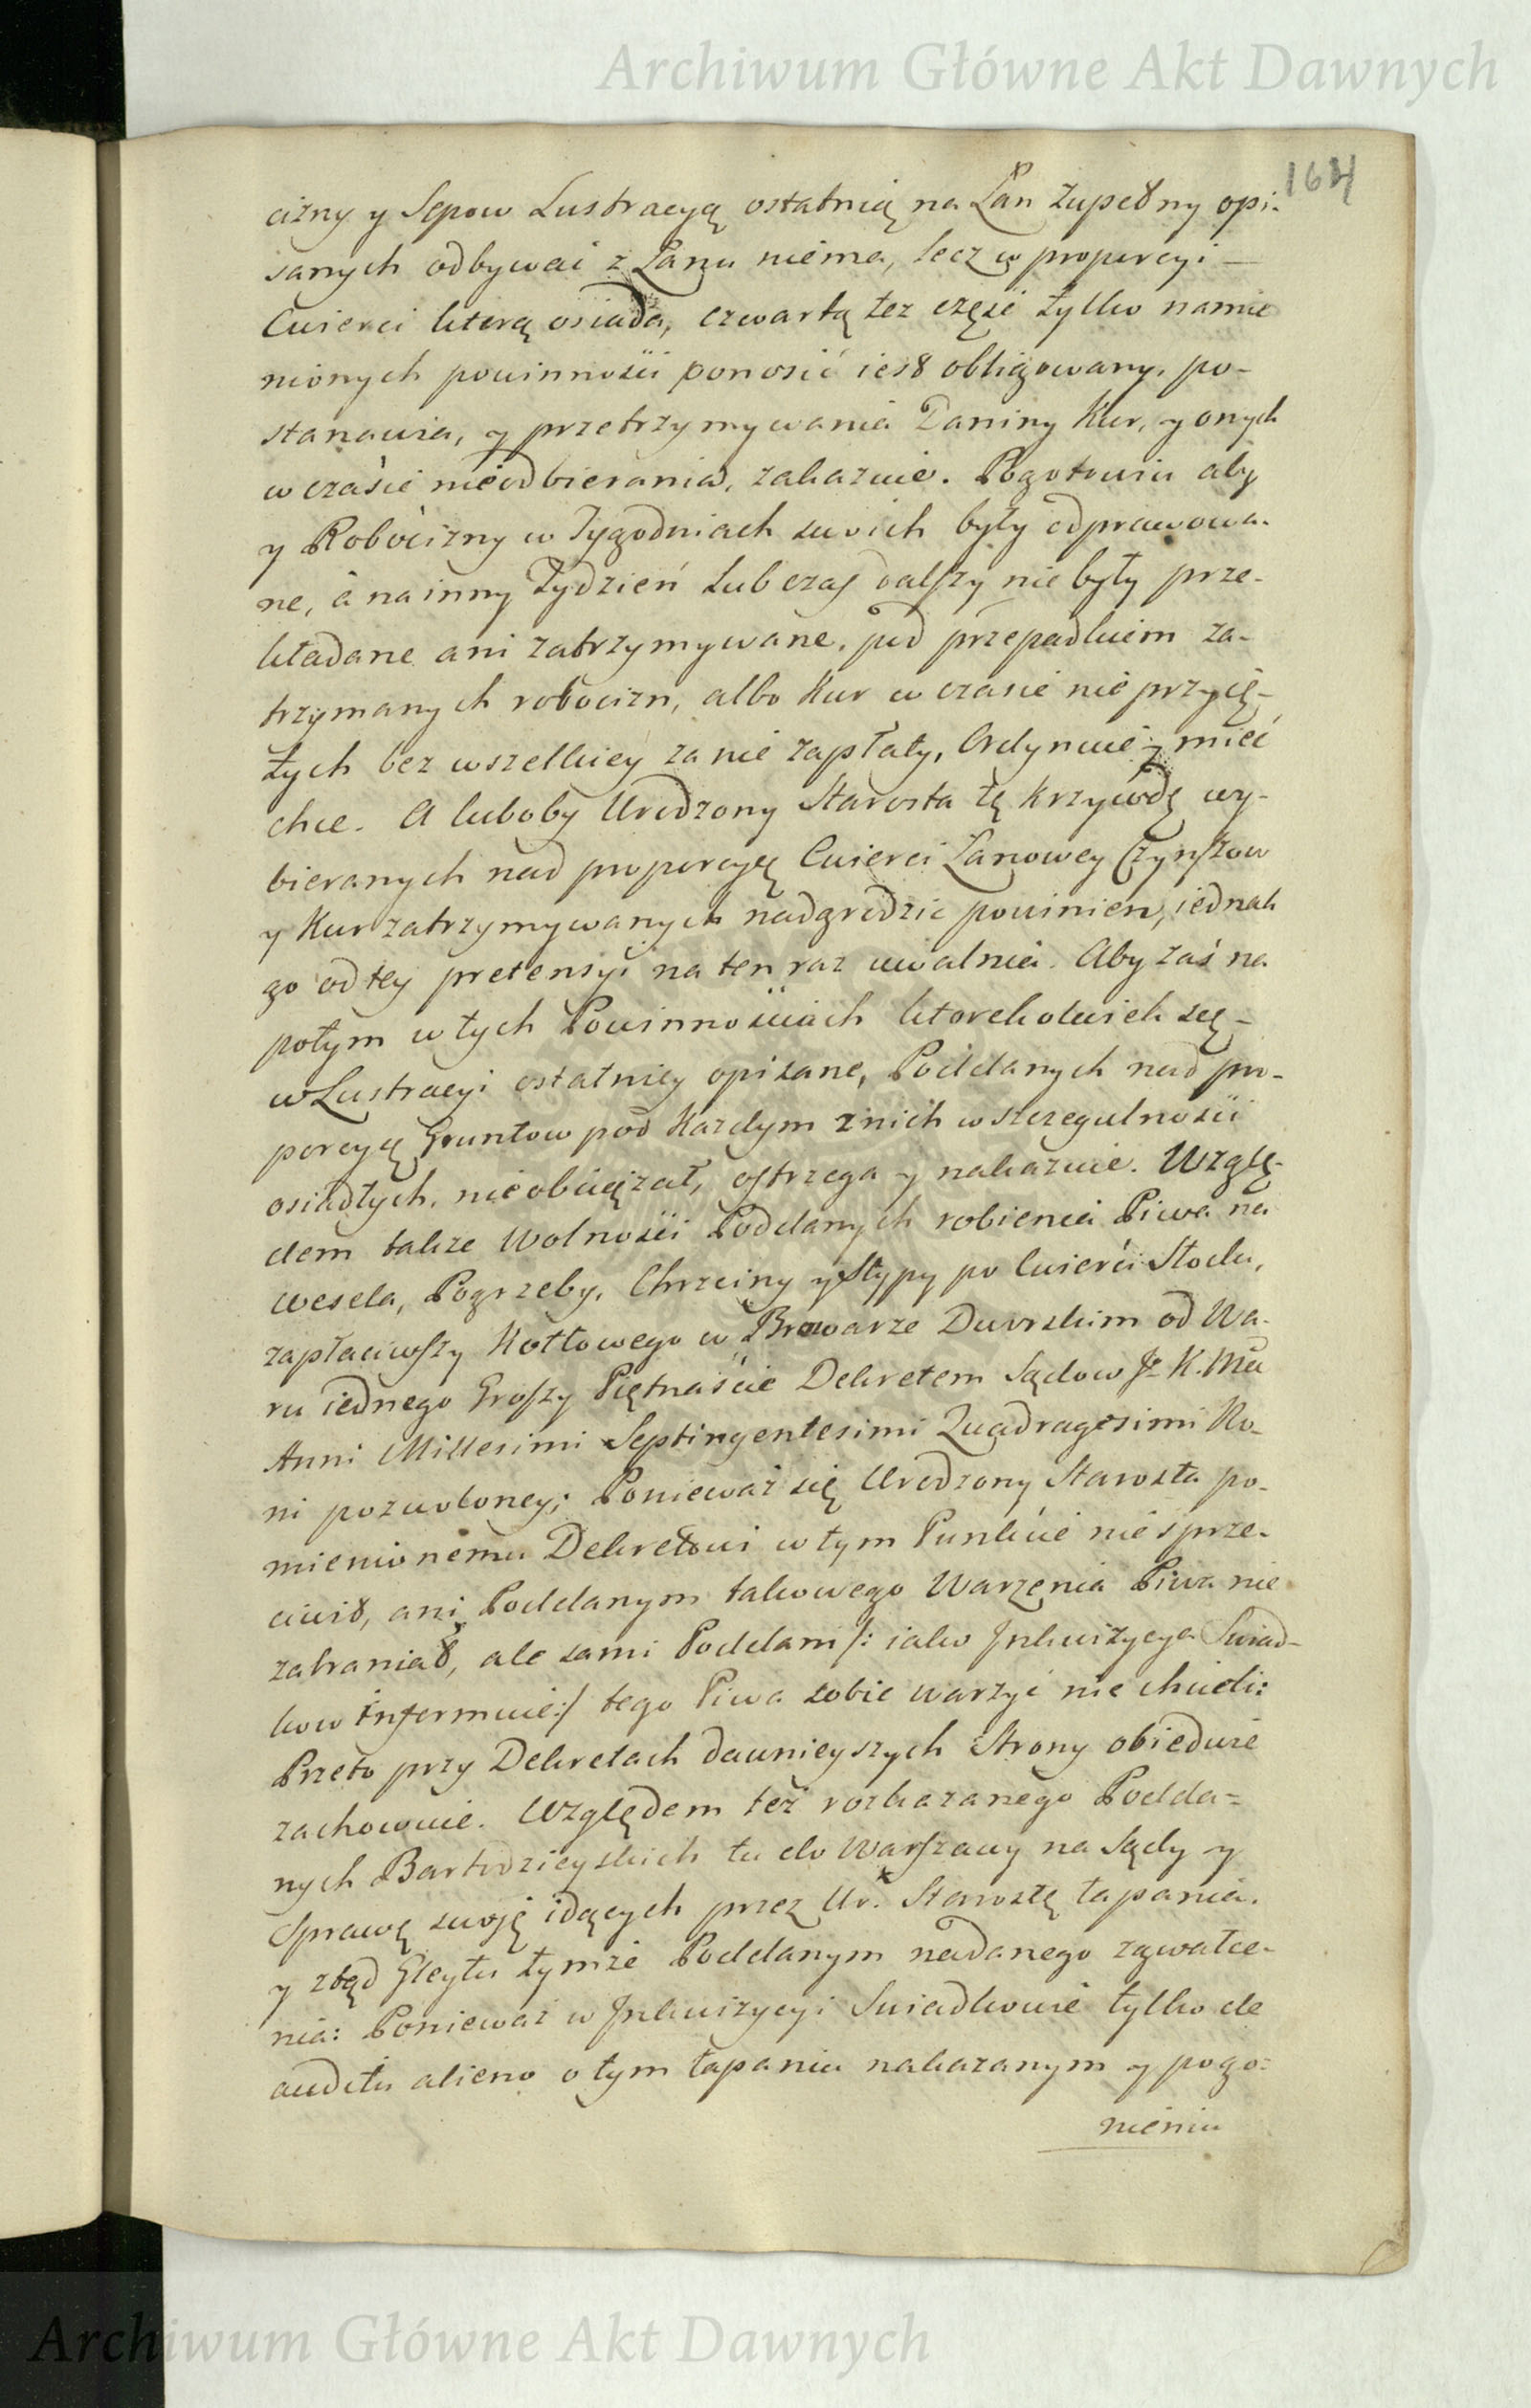 Archiwum Główne Akt Dawnych
164
cizny y Sepow Lustracyą ostatnią na Łan zupełny opi-
sanych odbywać z Łanu niema, lecz w proporcyi
Cwierci ktorą osiada, czwartą tez część tylko namie
nionych powinności ponosić iest obligowany, po-
stanawia, y przetrzymywania Daniny Kur, y onych
w czasie nieodbierania, zakazuie. Pogotowiu aby
y Robocizny w Tygodniach swoich były odprawowa-
ne, a na inny Tydzień lub czas dalszy nie były prze-
kładane ani zatrzymywane, pod przepadkiem za-
trzymanych robocizn, albo Kur w czasie nie przyię-
tych bez wszelkiey za nie zapłaty, Ordynuie y mieć
chce. A luboby Urodzony Starosta tę krzywdę wy-
bieranych nad proporcyę Cwierci Łanowey Czynszow
y Kur zatrzymywanych nadgrodzić powinien, iednak
go od tey pretensyi na ten raz uwalnia. Aby zaś na
potym w tych Powinnościach ktorekolwiek są
w Lustracyi ostatniey opisane, Poddanych nad pro-
porcyą Gruntow pod Kazdym z nich w szczegulności
osiadłych, nie obciązał, ostrzega y nakazuie. Wzglę-
dem takze Wolności Poddanych robienia Piwa na
wesela, Pogrzeby, Chrzciny y Stypy po Cwierci Słodu,
zapłaciwszy Kotłowego w Browarze Dworskim od Wa-
ru iednego Groszy Piętnaście Dekretem Sądow J. K. Mci
Anni Millesimi Septingentesimi Quadragesimi No-
ni pozwoloney; Ponieważ się Urodzony Starosta po-
mienionemu Dekretowi w tym Punkcie nie sprze-
ciwił, ani Poddanym takowego Warzenia Piwa nie
zabraniał, ale sami Poddani /: iako Inkwizycya Swiad-
kow informuie :/ tego Piwa sobie warzyć nie chcieli:
Przeto przy Dekretach dawnieyszych Strony obiedwie
zachowuie. Względem też rozkazanego Podda-
nych Bartodzieyskich tu do Warszawy na Sądy y
Sprawę swoję idących przez Ur. Starostę łapania,
y ztąd Gleytu tymże Poddanym nadanego zgwałce-
nia: Ponieważ w Inkwizycyi Swiadkowie tylko de
auditu alieno o tym łapaniu nakazanym y pogo-
nieniu
Archiwum Główne Akt Dawnych